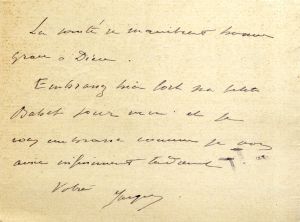 La santé se maintient bonne
grace à Dieu.
Embrassez bien fort ma petite
Babet pour moi et je
vous embrasse comme je vous
aime infiniment
Votre Jacques